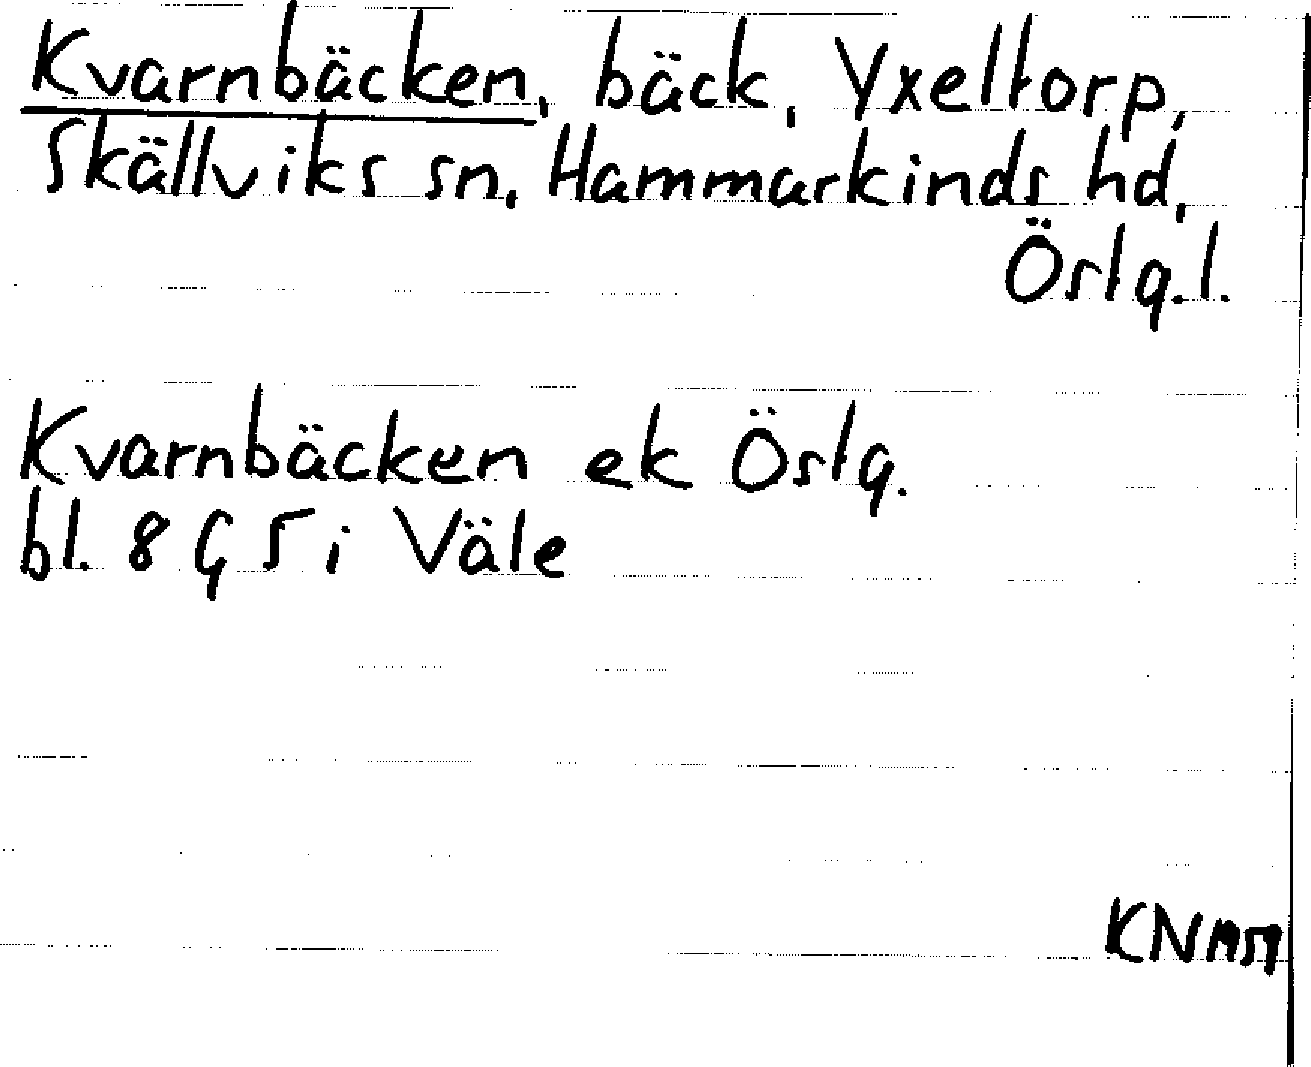 Kvarnbäcken, bäck, Yxeltorp,
Skällviks sn, Hammarkinds hd,
Östg.l.
Kvarnbäcken ek Östg.
bl. 8 G 5 i Väle